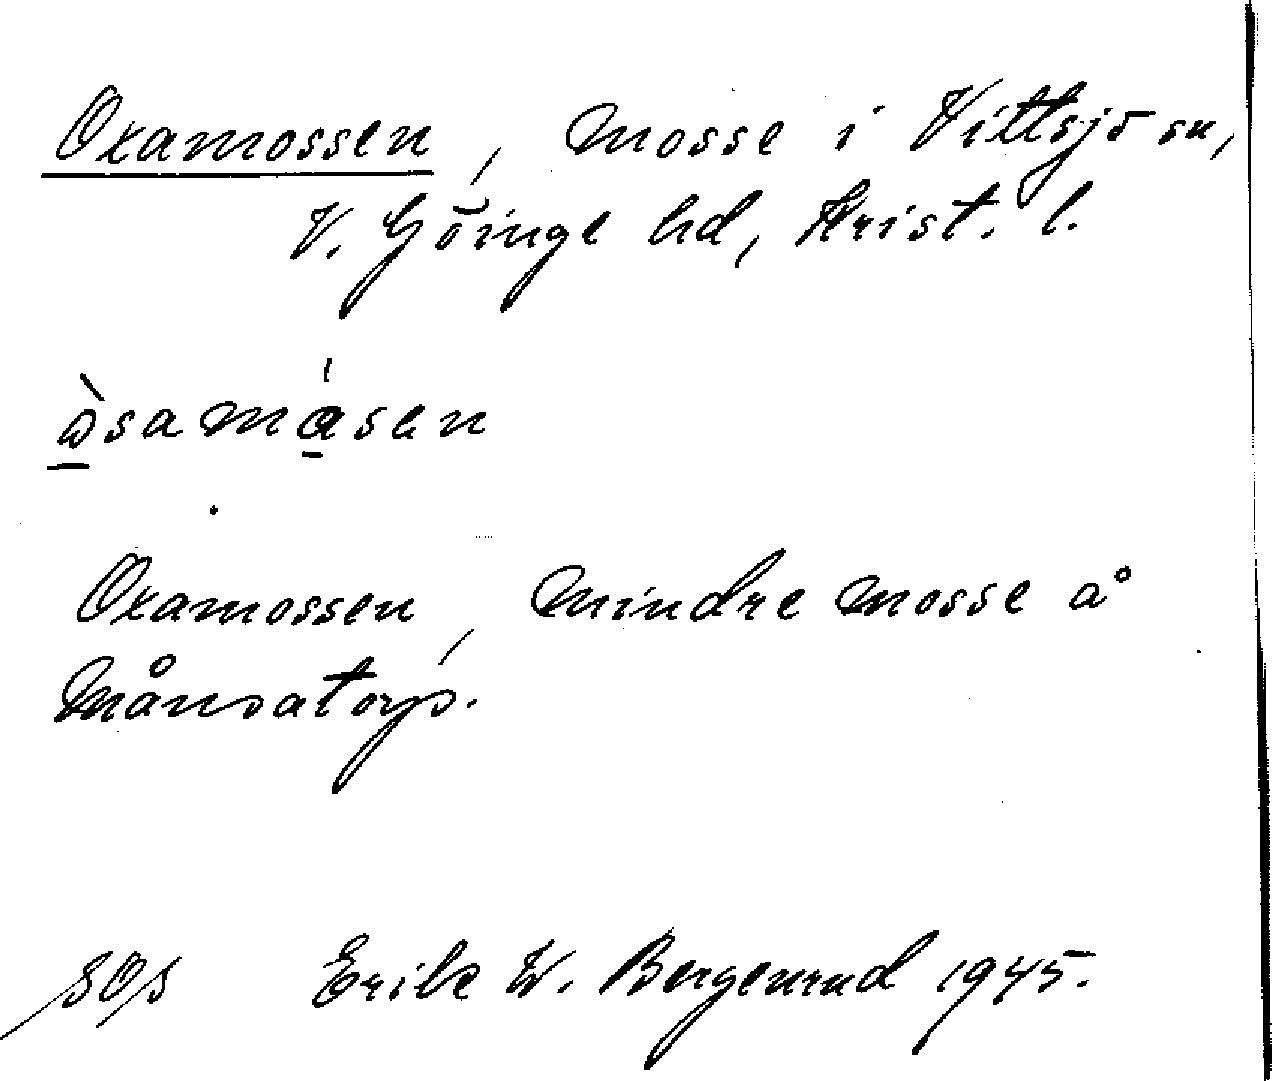 Oxamossen, mosse i Vittsjö sn,
V. Göinge hd, Krist. l.
òsamåsen
Oxamossen, mindre mosse å
Månsatorp.
Erik W. Bergenrud 1945.